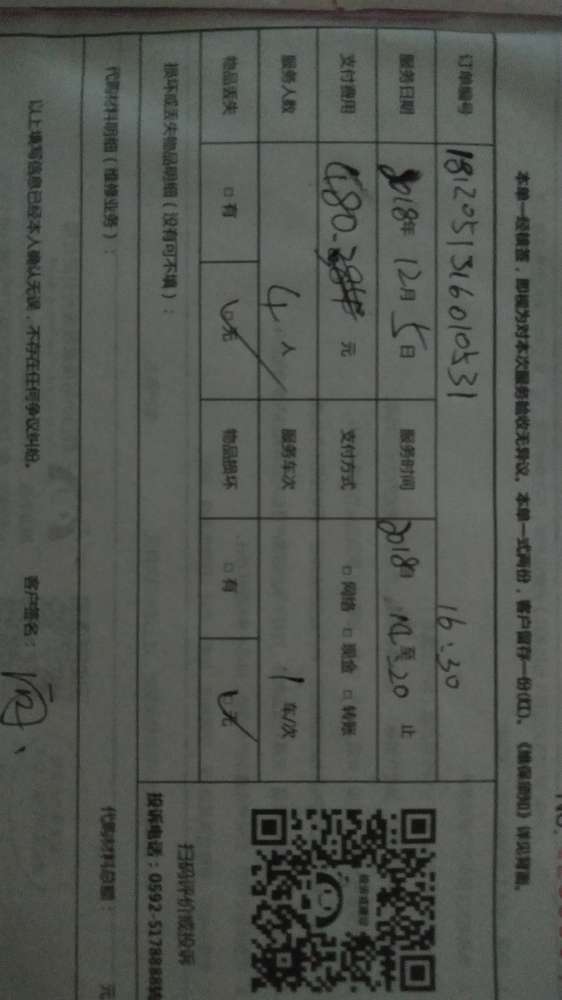 本单一经核签，即视为对本次服务验收无异议。本单一式两份，客户留存一份(红)。《维保须知》详见背面。
订单编号 1812051516010531
16:30
服务日期 2018年 12月 5日 服务时间 2018年 至 20 止
支付费用 480 元 支付方式 □ 网络 □ 现金 □ 转账
服务人数 4 人 服务车次 1 车/次
物品丢失 □ 有 □ 无 物品损坏 □ 有 □ 无
损坏或丢失物品明细（没有可不填）：
扫码评价或投诉
投诉电话：0592-5178888转
代购材料明细（维修业务）：
代购材料总额： 元
以上填写信息已经本人确认无误，不存在任何争议纠纷。 客户签名：